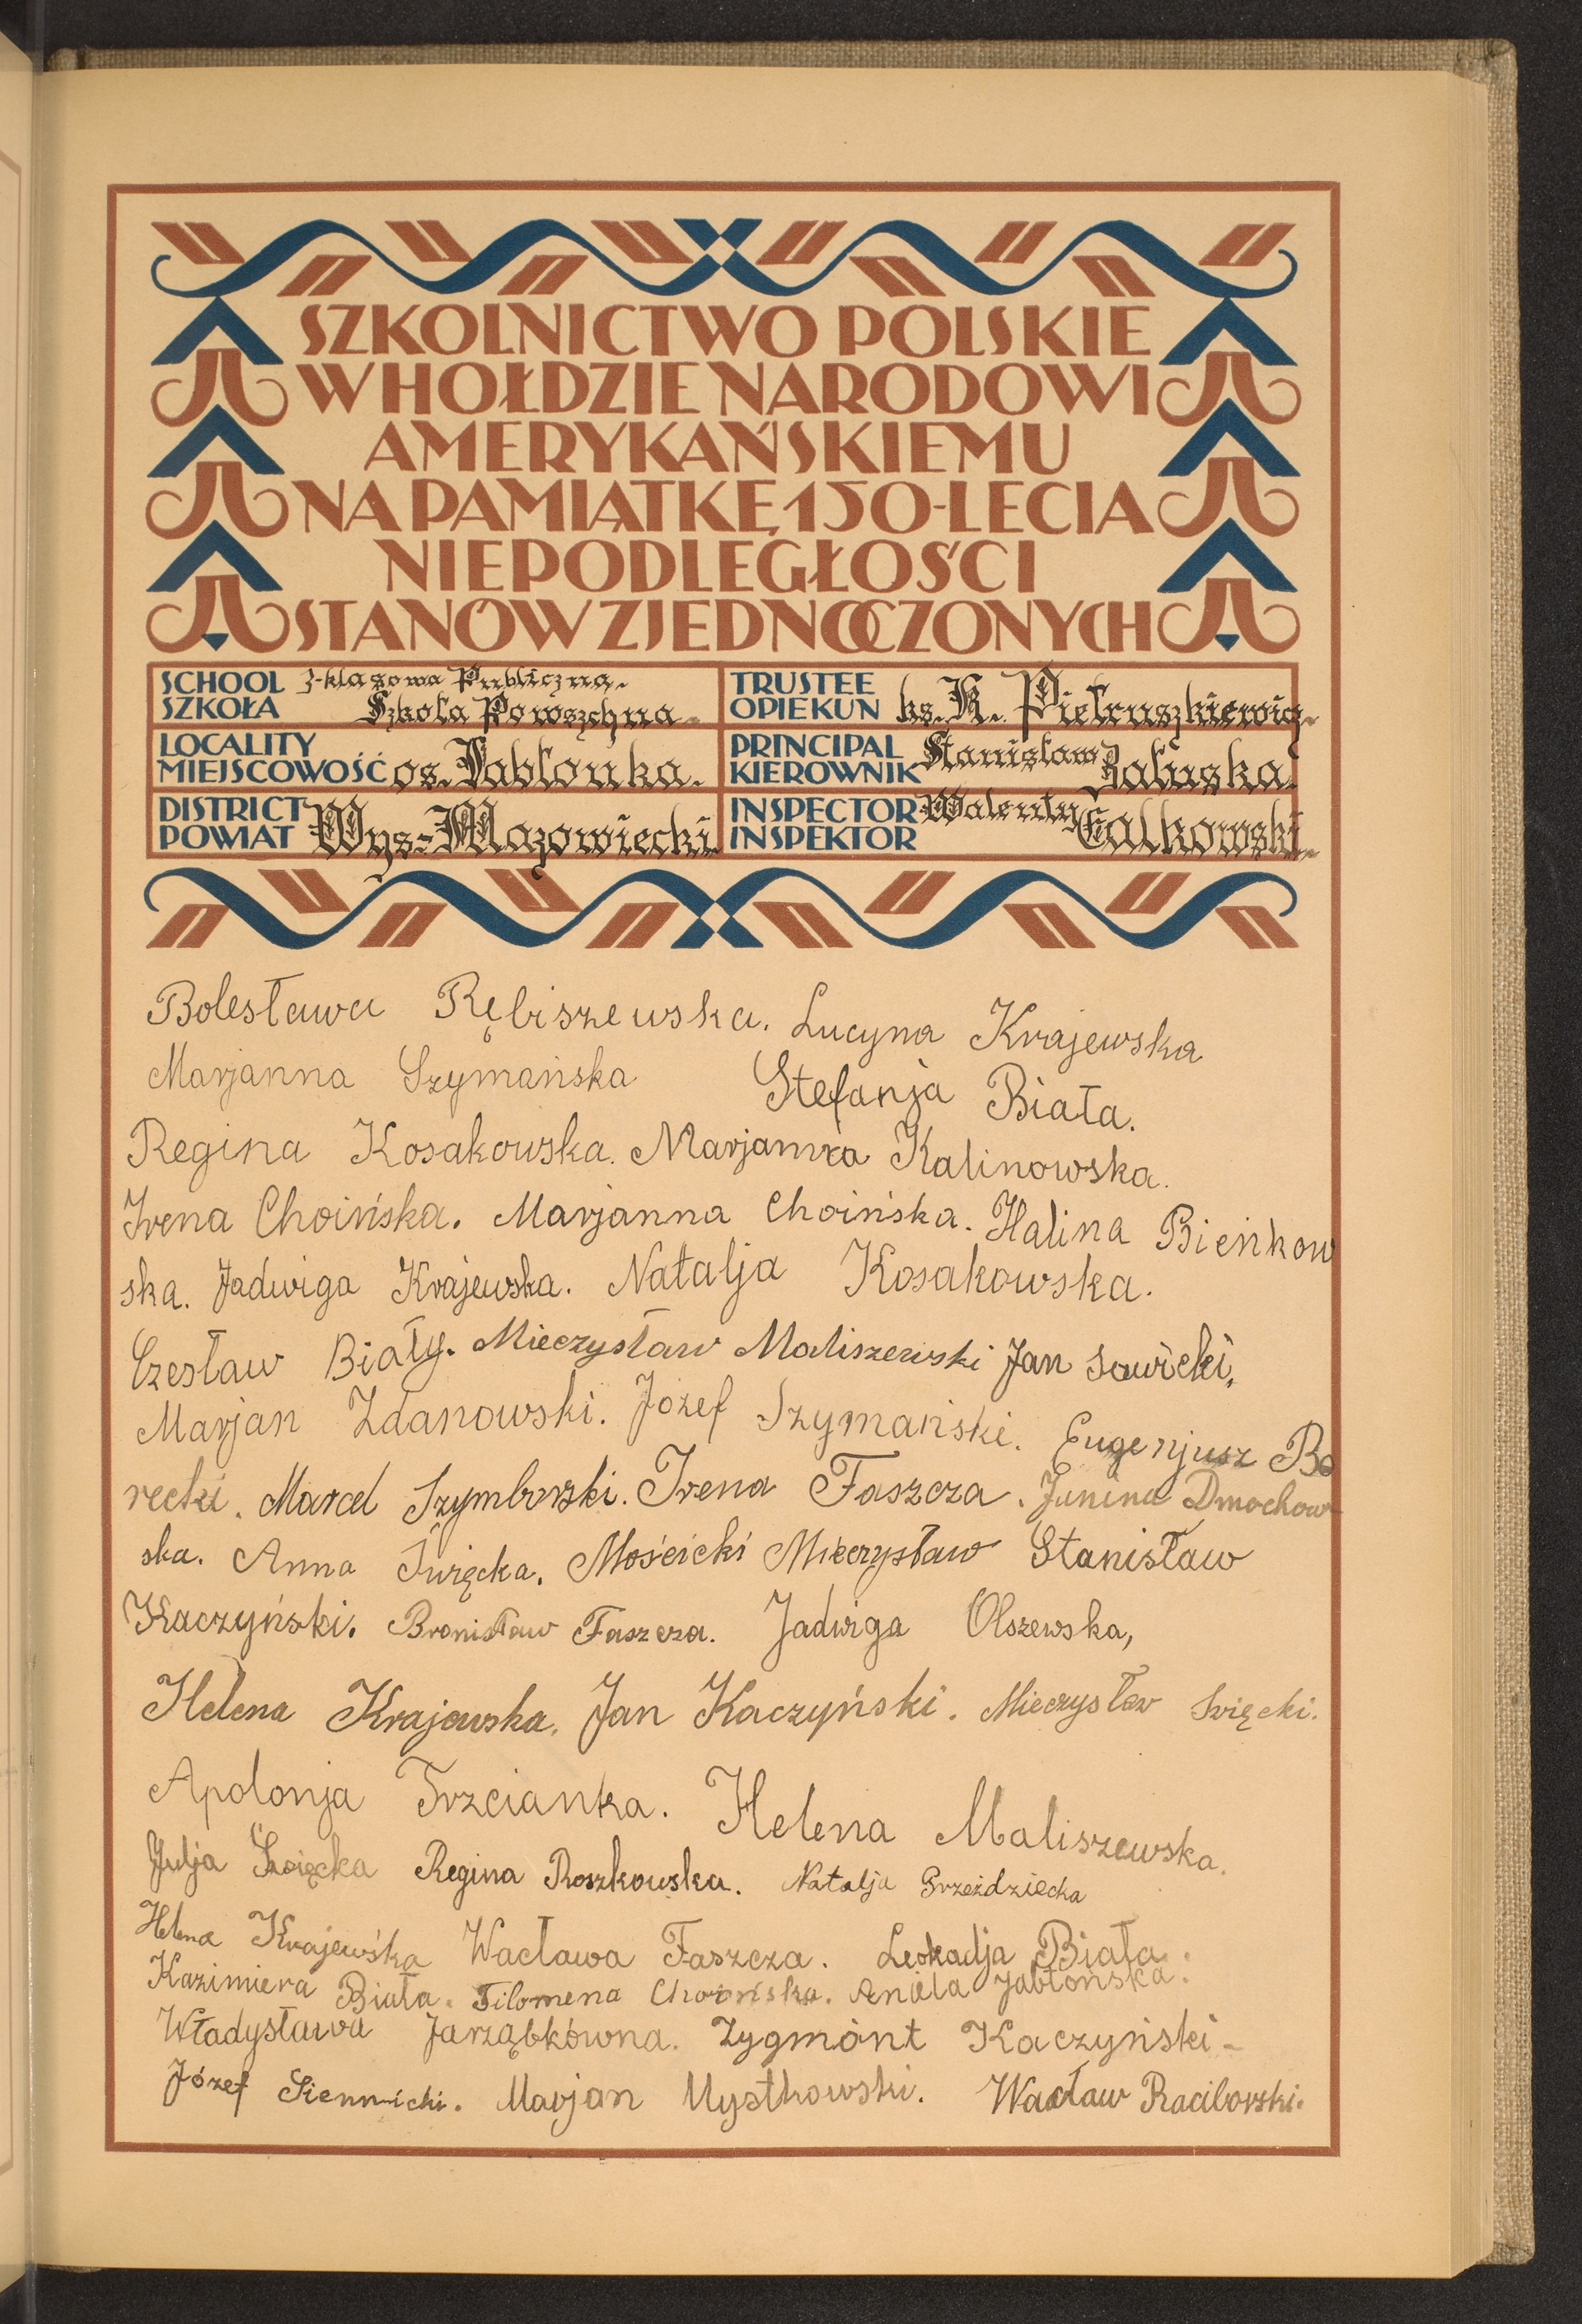 SZKOLNICTWO POLSKIE
W HOŁDZIE NARODOWI
AMERYKAŃSKIEMU
NA PAMIĄTKĘ 150-LECIA
NIEPODLEGŁOŚCI
STANÓW ZJEDNOCZONYCH
SCHOOL SZKOŁA 3-klasowa Publiczna.
Szkoła Powszechna.
TRUSTEE OPIEKUN ks. K. Pietruszkiewicz.
LOCALITY MIEJSCOWOŚĆ os. Jabłonka.
PRINCIPAL KIEROWNIK Stanisław Załuska.
DISTRICT POWIAT Wys-Mazowiecki.
INSPECTOR INSPEKTOR Walenty Całkowski.
Bolesława Rębiszewska. Lucyna Krajewska
Marjanna Szymańska Stefanja Biała.
Regina Kosakowska. Marjanna Kalinowska.
Irena Choińska. Marjanna Choińska. Halina Bieńkow
ska. Jadwiga Krajewska. Natalja Kosakowska.
Czesław Biały. Mieczysław Maliszewski Jan Sawicki,
Marjan Zdanowski. Józef Szymański. Eugenjusz Bo
recki. Marcel Szymborski. Irena Faszcza. Janina Dmochow-
ska. Anna Święcka. Mościcki Mieczysław Stanisław
Kaczyński. Bronisław Faszcza. Jadwiga Olszewska,
Helena Krajewska. Jan Kaczyński. Mieczysław Święcki.
Apolonja Trzcianka. Helena Maliszewska.
Julja Święcka Regina Roszkowska. Natalja Grzeździecka
Helena Krajewska Wacława Faszcza. Leokadja Biała.
Kazimiera Biała. Filomena Choińska. Aniela Jabłońska.
Władysława Jarząbkówna. Zygmónt Kaczyński-
Józef Siennicki. Marjan Mystkowski. Wacław Raciborski.